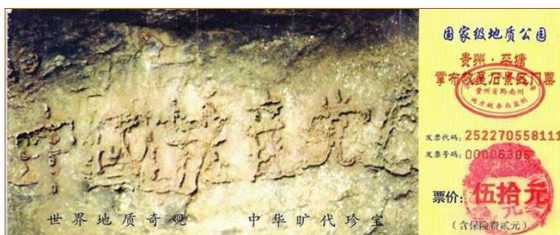 中國共产党
世界地质奇观 中华旷代珍宝
国家级地质公园
贵州·平塘
掌布藏字石景区门票
贵州省黔南州
地方税务局监制
发票代码: 252270558111
发票号码: 00006306
票价: 伍拾元
(含保险费贰元)